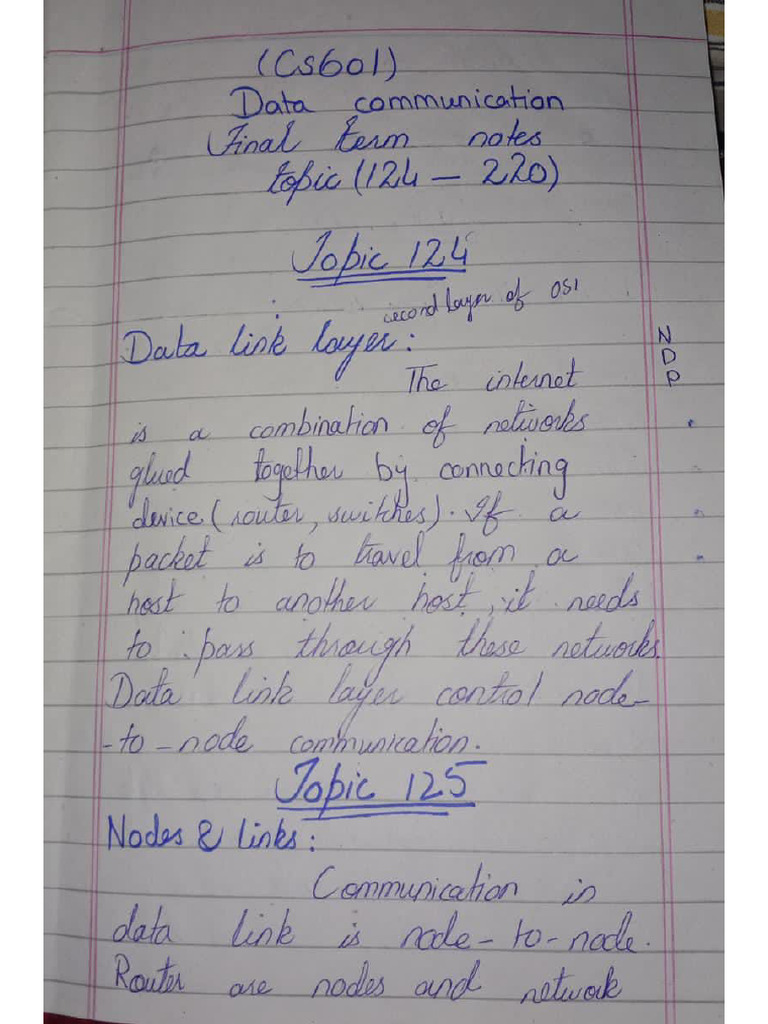 (CS601)
Data communication
Final term notes
topic (124 - 220)
Topic 124
second layer of OSI
Data link layer:
N
D
P
The internet
is a combination of networks
glued together by connecting
device (router, switches). If a
packet is to travel from a
host to another host, it needs
to pass through these networks.
Data link layer control node-
-to-node communication.
Topic 125
Nodes & links:
Communication in
data link is node-to-node.
Router are nodes and network